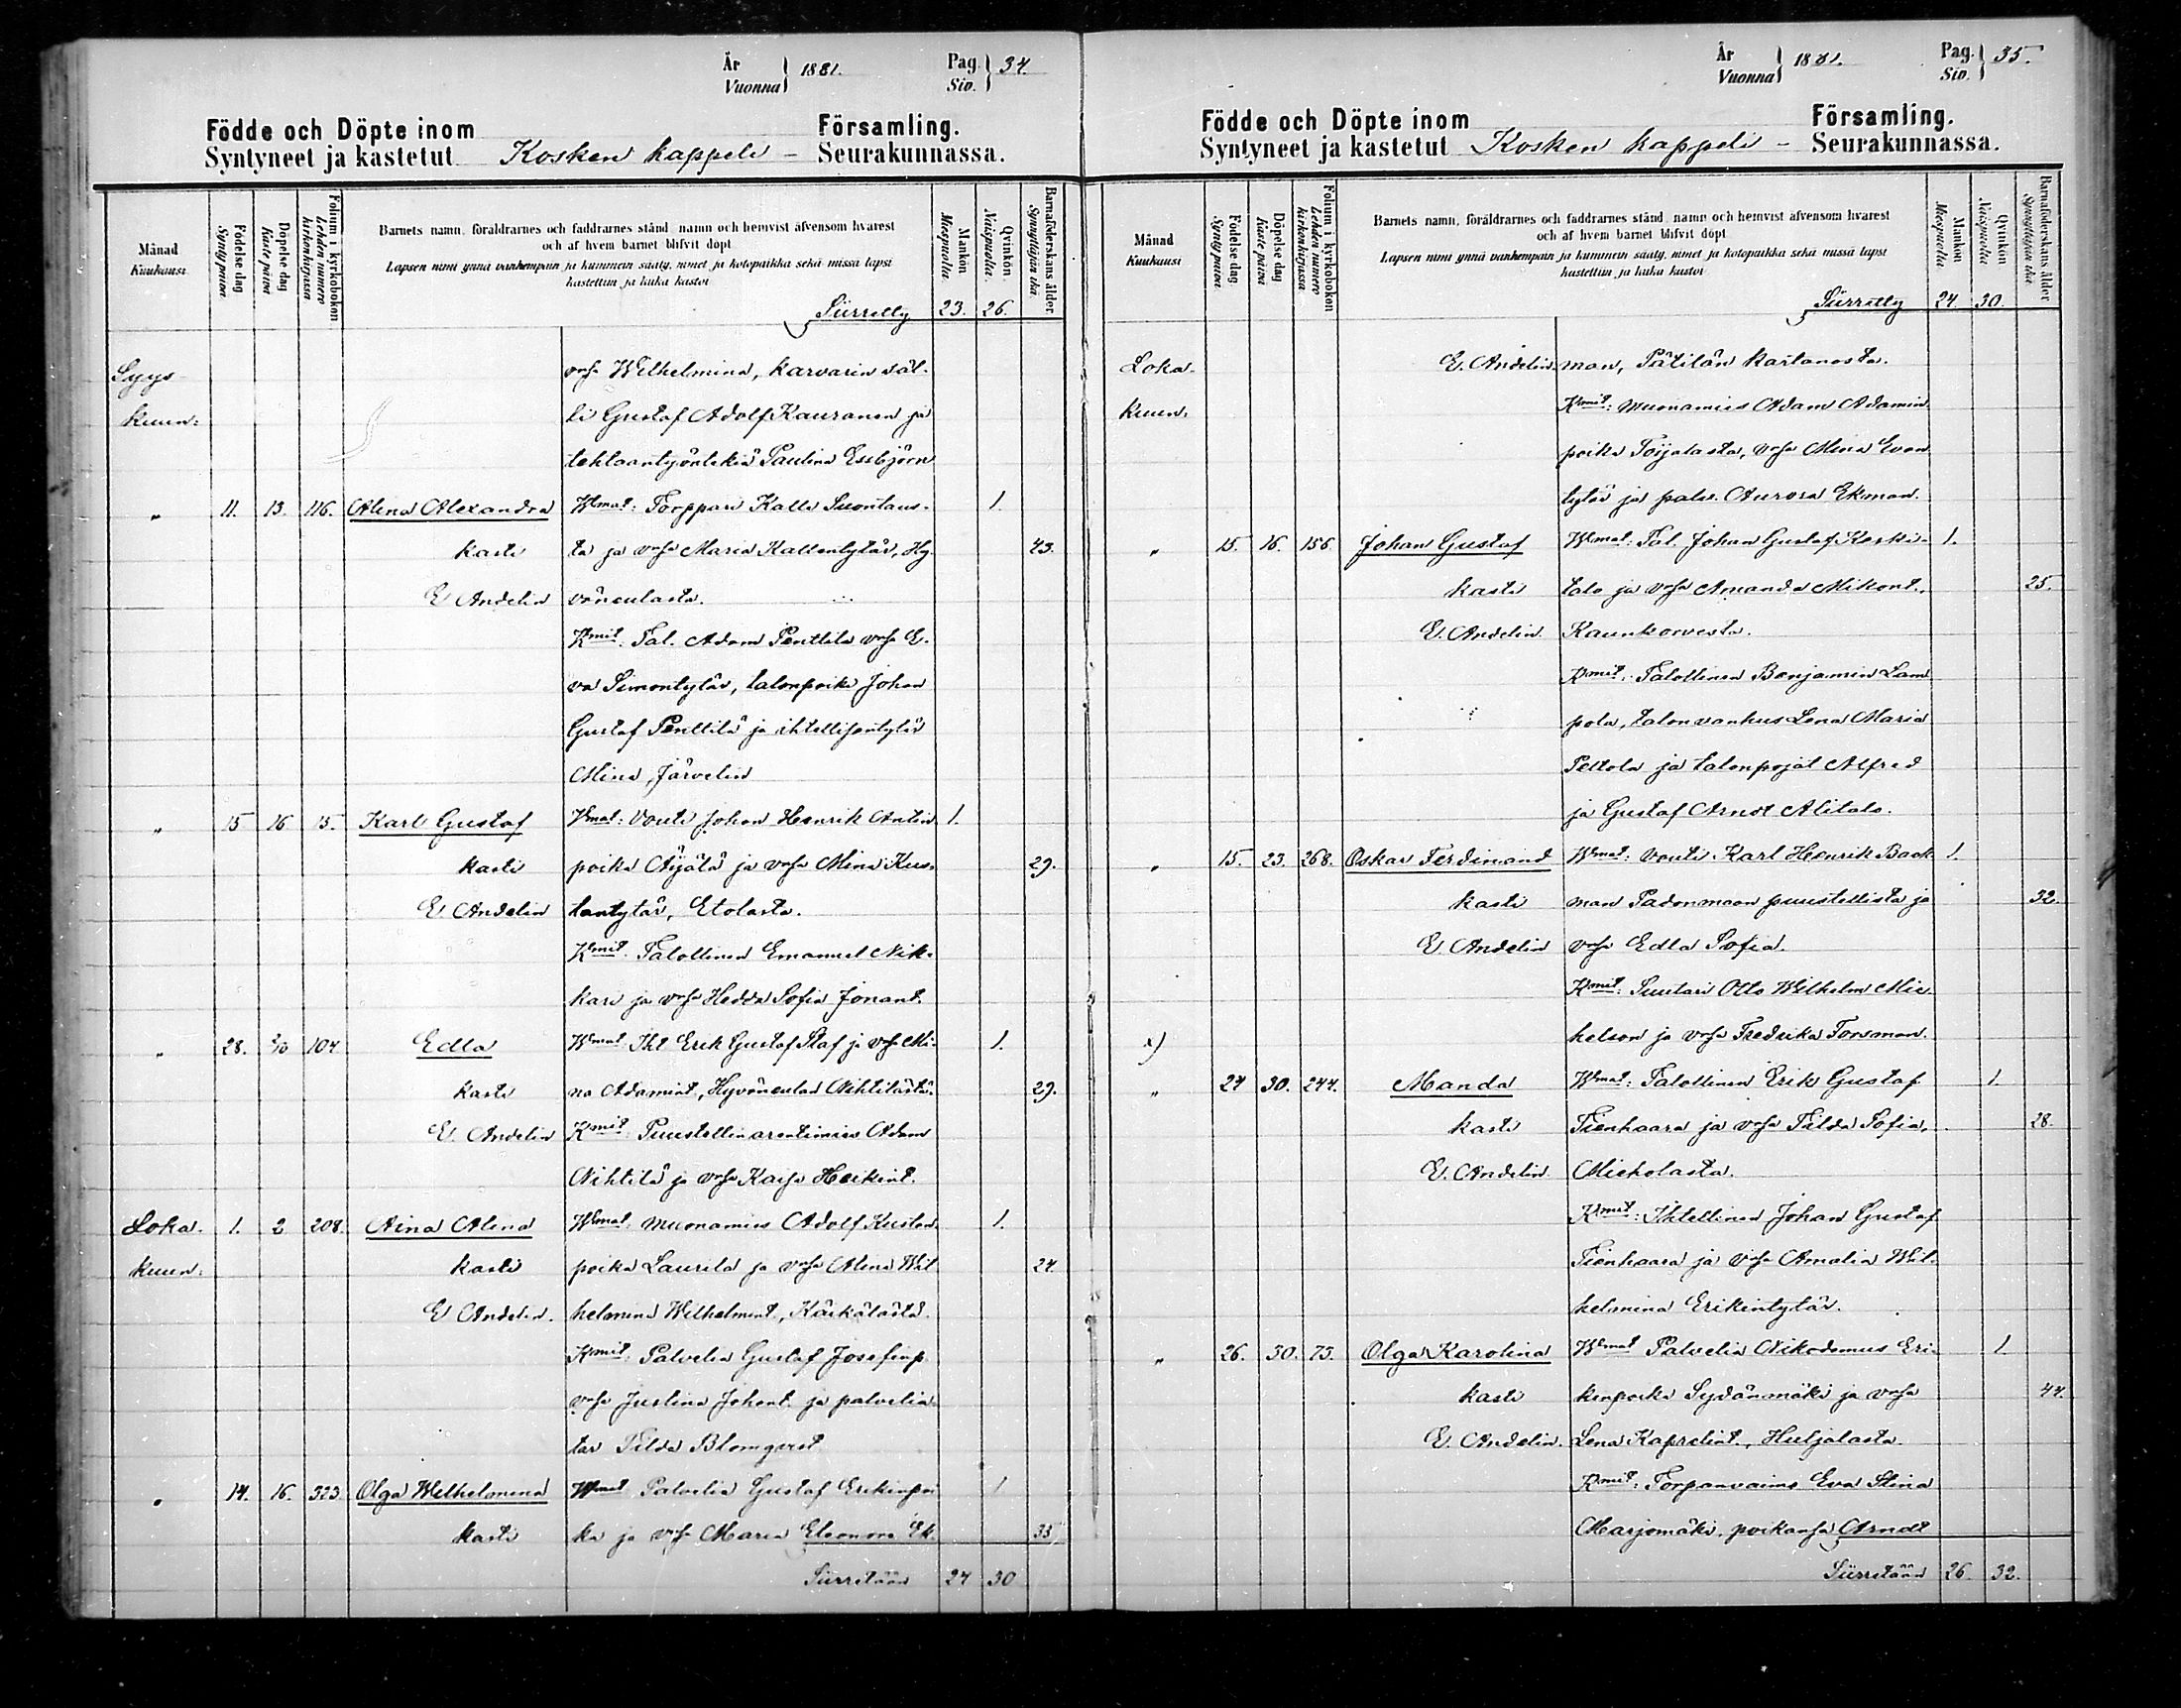 År
Vuonna } 1881.
Pag.
Siv. } 34.
Födde och Döpte inom
Syntyneet ja kastetut Kosken kappeli –
Församling.
Seurakunnassa.
Månad
Kuukausi
Födelse dag
Syntypäivä
Döpelse dag
Kastepäivä
Folium i kyrkoboken
Lehden numero kirkonkirjassa
Barnets namn, föräldrarnes och faddrarnes stånd, namn och hemvist äfvensom hvarest
och af hvem barnet blifvit döpt
Lapsen nimi ynnä vanhempain ja kummein sääty, nimet ja kotopaikka sekä missä lapsi
kastettiin ja kuka kastoi
Mankön
Miespuolia
Qvinkön
Naispuolia
Barnaföderskans ålder
Synnyttäjän ikä
Siirretty 23. 26.
Syys- vsa Wilhelmina, karvarin säl-
kuun: li Gustaf Adolf Kauranen ja
tehtaantyöntekiä Paulina Essbjörn
„ 11. 13. 116. Alina Alexandra Wemat: Torppari Kalle Suontaus- 1.
kasti ta ja vsa Maria Kallentytär, Hy- 43.
E Andelin vöneulasta.
Kmit: Tal. Adam Penttila vsa E-
va Simontytär, talonpoika Johan
Gustaf Penttilä ja ihtellisentytär
Mina Järvelin
„ 15 16 15. Karl Gustaf Wmat: Vouti Johan Henrik Antin 1.
kasti poika Äijälä ja vsa Mina Kus- 29.
E Andelin tantytär, Etolasta.
Kmit: Talollinen Emanuel Nik-
kari ja vsa Hedda Sofia Jonant.
„ 28. 2/10 104 Edla Wmat: Iht Erik Gustaf Staf ja vsa Mi- 1.
kasti na Adamint., Hyvöneulan Nihtilästä. 29.
E Andelin Kmit: Puustellinarentimies Adam
Nihtilä ja vsa Kaisa Heikint.
Loka- 1. 2 208. Aina Alina Wmat: muonamies Adolf Kustan 1.
kuun: kasti poika Laurila ja vsa Alina Wil 24.
E Andelin. helmina Wilhelmint., Käikälästä.
Kmit: Palvelia Gustaf Josefinp.
vsa Justina Johant. ja palvelia-
tar Tilda Blomqvist
„ 14. 16. 323 Olga Wilhelmina Wmat: Palvelia Gustaf Erikinpoi 1
kasti ka ja vsa Maria Eleonora Ek- 35
Siirretään 24 30
År
Vuonna } 1881.
Pag.
Siv. } 35.
Födde och Döpte inom
Syntyneet ja kastetut Kosken kappeli –
Församling.
Seurakunnassa.
Månad
Kuukausi
Födelse dag
Syntypäivä
Döpelse dag
Kastepäivä
Folium i kyrkoboken
Lehden numero kirkonkirjassa
Barnets namn, föräldrarnes och faddrarnes stånd, namn och hemvist äfvensom hvarest
och af hvem barnet blifvit döpt
Lapsen nimi ynnä vanhempain ja kummein sääty, nimet ja kotopaikka sekä missä lapsi
kastettiin ja kuka kastoi
Mankön
Miespuolia
Qvinkön
Naispuolia
Barnaföderskans ålder
Synnyttäjän ikä
Siirretty 24. 30.
Loka- E. Andelin. man, Pätilän kartanosta.
kuun. Kmit: muonamies Adam Adamin
poika Toijalasta, vsa Mina Evan
tytär ja palv. Aurora Ekman.
„ 15. 16. 156. Johan Gustaf Wmat: Tal. Johan Gustaf Keski- 1.
kasti talo ja vsa Amanda Mikont., 25.
E. Andelin. Kaunkorvesta.
Kmit: Talollinen Benjamin Lam
pola, talonvanhus Lena Maria
Peltola ja talonpojat Alfred
ja Gustaf Arndt Alitalo.
„ 15. 23. 268. Oskar Ferdinand Wmat: Vouti Karl Henrik Back 1.
kasti man Padonmaan puustellista ja 32.
E. Andelin vsa Edla Sofia.
Kmit: Suutari Otto Wilhelm Mic-
x) helson ja vsa Fredrika Forsman.
„ 24 30. 244. Manda Wmat: Talollinen Erik Gustaf 1.
kasti Tienhaara ja vsa Tilda Sofia, 28.
E. Andelin Mickolasta.
Kmit: Ihtellinen Johan Gustaf
Tienhaara ja vsa Amalia Wil-
helmina Erikintytär.
„ 26. 30. 73. Olga Karolina Wmat: Palvelia Nikodemus Eri- 1.
kasti kinpoika Sydänmäki ja vsa 44.
E. Andelin. Lena Kaprelint., Huljalasta.
Kmit: Torpanvaimo Eva Stina
Marjomäki, poikansa Arndt
Siirretään 26. 32.